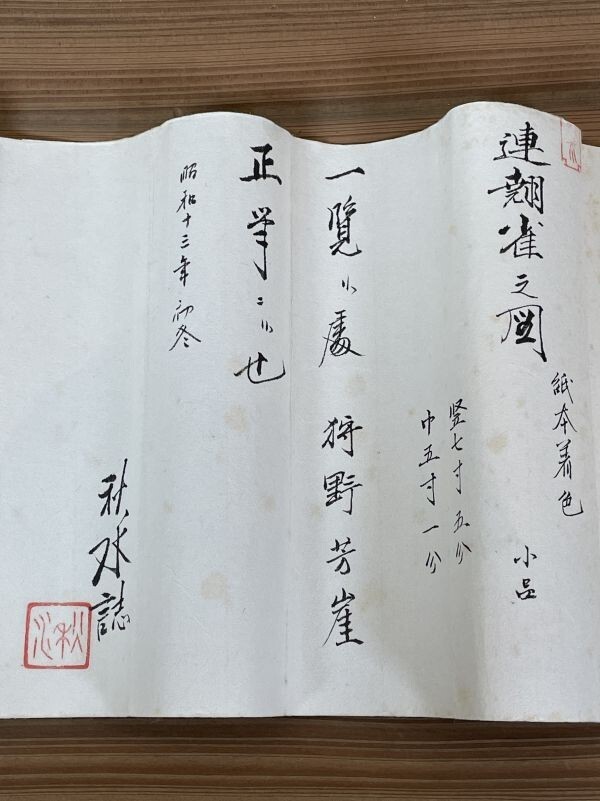 連翹雀之図
紙本着色 小品
竪七寸五分
巾五寸一分
一覧候處 狩野芳崖
正筆ニ候也
昭和十三年初冬
秋水誌
秋水